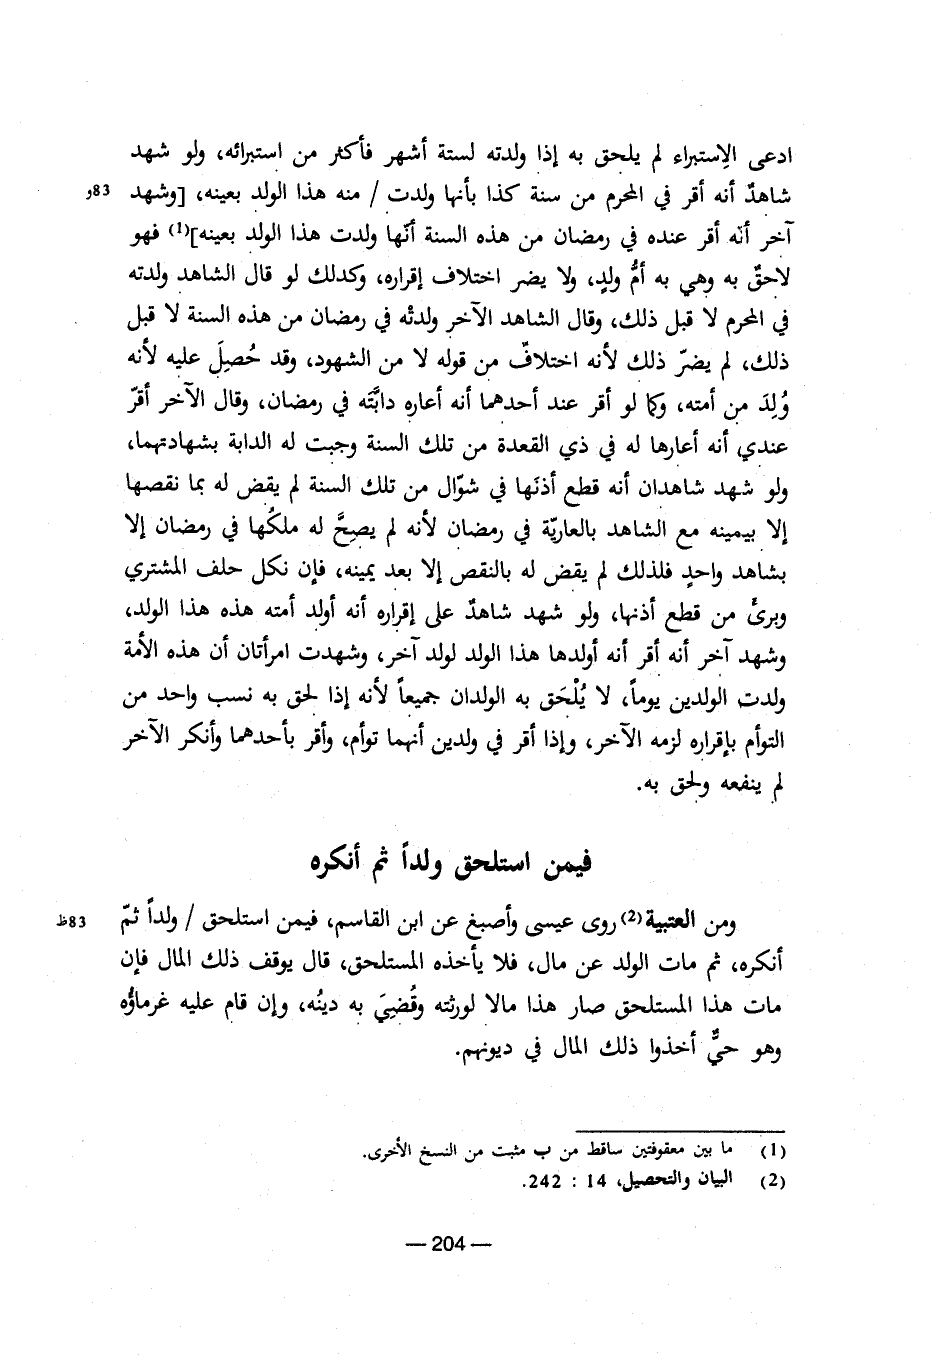 ادعى الإستبراء لم يلحق به إذا ولدته لستة أشهر فأكثر من استبرائه، ولو شهد
شاهدٌ أنه أقر في المحرم من سنة كذا بأنها ولدت / منه هذا الولد بعينه، [وشهد 83و
آخر أنّه أقر عنده في رمضان من هذه السنة أنّها ولدت هذا الولد بعينه](1) فهو
لاحقٌ به وهي به أمُّ ولدٍ، ولا يضر اختلاف إقراره، وكذلك لو قال الشاهد ولدته
في المحرم لا قبل ذلك، وقال الشاهد الآخر ولدتْه في رمضان من هذه السنة لا قبل
ذلك، لم يضرّ ذلك لأنه اختلافٌ من قوله لا من الشهود، وقد حُصِلَ عليه لأنه
وُلِدَ من أمته، وكما لو أقر عند أحدهما أنه أعاره دابَّتَه في رمضان، وقال الآخر أقرّ
عندي أنه أعارها له في ذي القعدة من تلك السنة وجبت له الدابة بشهادتهما،
ولو شهد شاهدان أنه قطع أذنَها في شوّال من تلك السنة لم يقض له بما نقصها
إلا بيمينه مع الشاهد بالعاريّة في رمضان لأنه لم يصِحَّ له ملكُها في رمضان إلا
بشاهد واحدٍ فلذلك لم يقض له بالنقص إلا بعد يمينه، فإن نكل حلف المشتري
وبرئَ من قطع أذنها، ولو شهد شاهدٌ على إقراره أنه أولد أمته هذه هذا الولد،
وشهد آخر أنه أقر أنه أولدها هذا الولد لولد آخر، وشهدت امرأتان أن هذه الأمة
ولدت الولدين يوماً، لا يُلْحَق به الولدان جميعاً لأنه إذا لحق به نسب واحد من
التوأم بإقراره لزمه الآخر، وإذا أقر في ولدين أنهما توأم، وأقر بأحدهما وأنكر الآخر
لم ينفعه ولحق به.
فيمن استلحق ولداً ثم أنكره
ومن العتبية(2) روى عيسى وأصبغ عن ابن القاسم، فيمن استلحق / ولداً ثمّ 83ظ
أنكره، ثم مات الولد عن مال، فلا يأخذه المستلحق، قال يوقف ذلك المال فإن
مات هذا المستلحق صار هذا مالا لورثته وقُضيَ به دينُه، وإن قام عليه غرماؤُه
وهو حيٌّ أخذوا ذلك المال في ديونهم.
(1) ما بين معقوفتين ساقط من ب مثبت من النسخ الأخرى.
(2) البيان والتحصيل، 14 : 242.
— 204 —